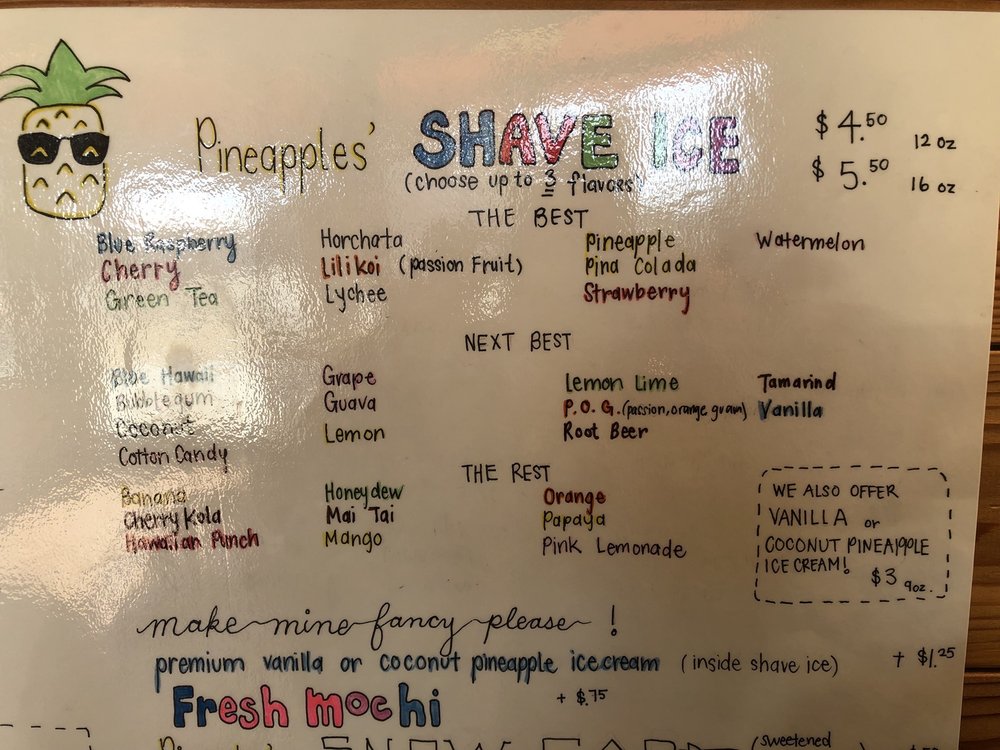 Pineapples' SHAVE ICE
(choose up to 3 flavors)
$4.50 12 oz
$5.50 16 oz
THE BEST
Blue Raspberry Horchata Pineapple Watermelon
Cherry Lilikoi (passion Fruit) Pina Colada
Green Tea Lychee Strawberry
NEXT BEST
Blue Hawaii Grape Lemon Lime Tamarind
Bubblegum Guava P.O.G. (passion, orange, guava) Vanilla
Coconut Lemon Root Beer
Cotton Candy
THE REST
Banana Honeydew Orange
Cherry Kola Mai Tai Papaya
Hawaiian Punch Mango Pink Lemonade
WE ALSO OFFER
VANILLA or
COCONUT PINEAPPLE
ICE CREAM! $3 9oz.
make mine fancy please !
premium vanilla or coconut pineapple icecream (inside shave ice) + $1.25
Fresh mochi + $.75
(sweetened